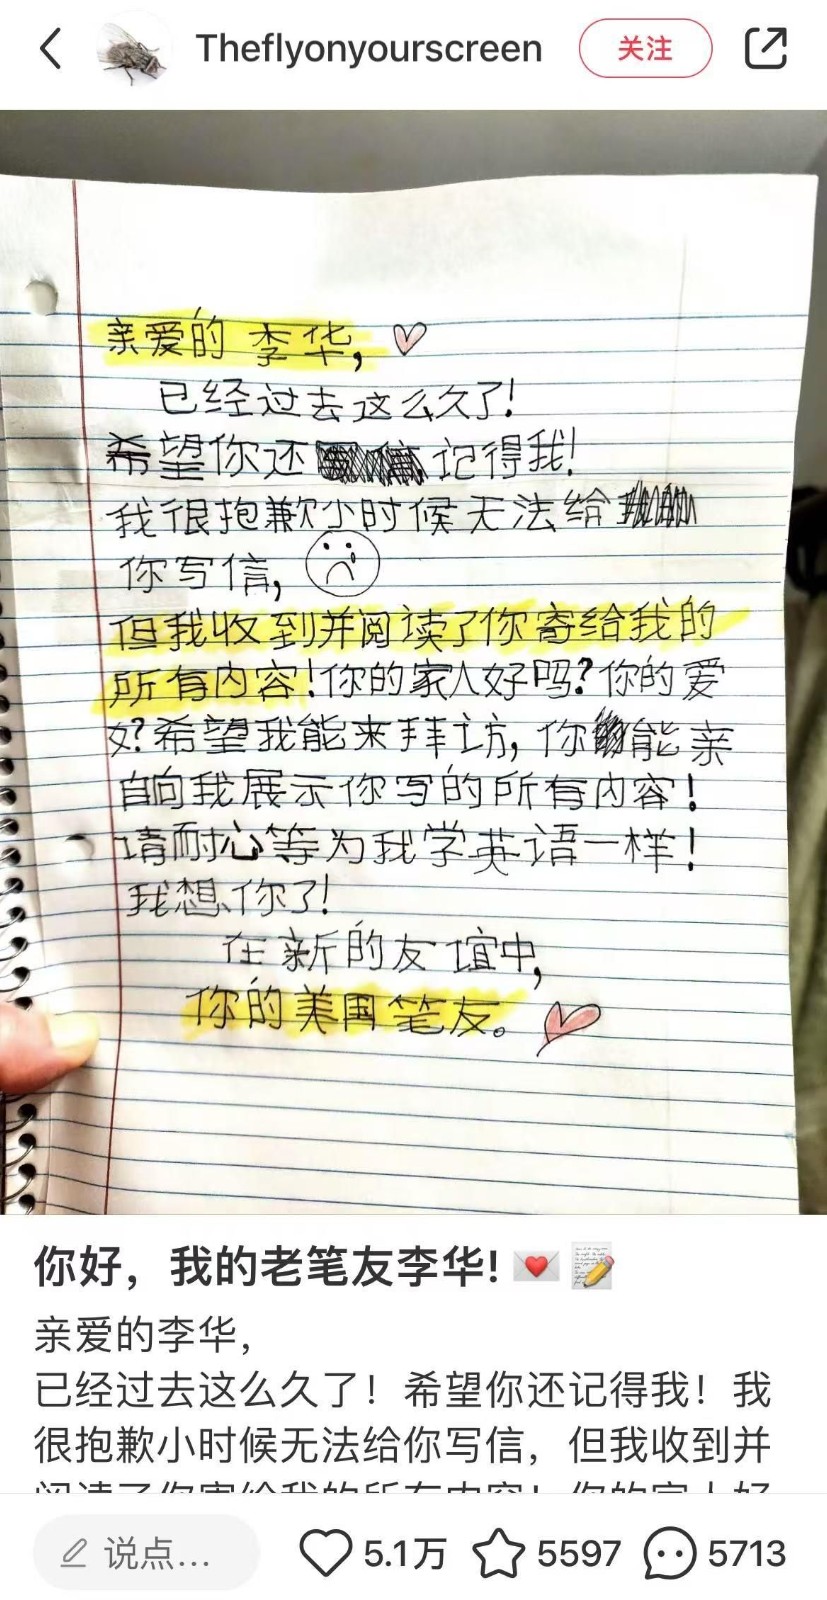 Theflyonyourscreen
关注
亲爱的 李华,
已经过去这么久了!
希望你还 记得我!
我很抱歉小时候无法给
你写信,
但我收到并阅读了你寄给我的
所有内容!你的家人好吗?你的爱
好?希望我能来拜访, 你能亲
自向我展示你写的所有内容!
请耐心等为我学英语一样!
我想你了!
在新的友谊中,
你的美国笔友。
你好，我的老笔友李华!
亲爱的李华，
已经过去这么久了！希望你还记得我！我
很抱歉小时候无法给你写信，但我收到并
阅读了你寄给我的所有内容！你的家人好
说点...
5.1万
5597
5713